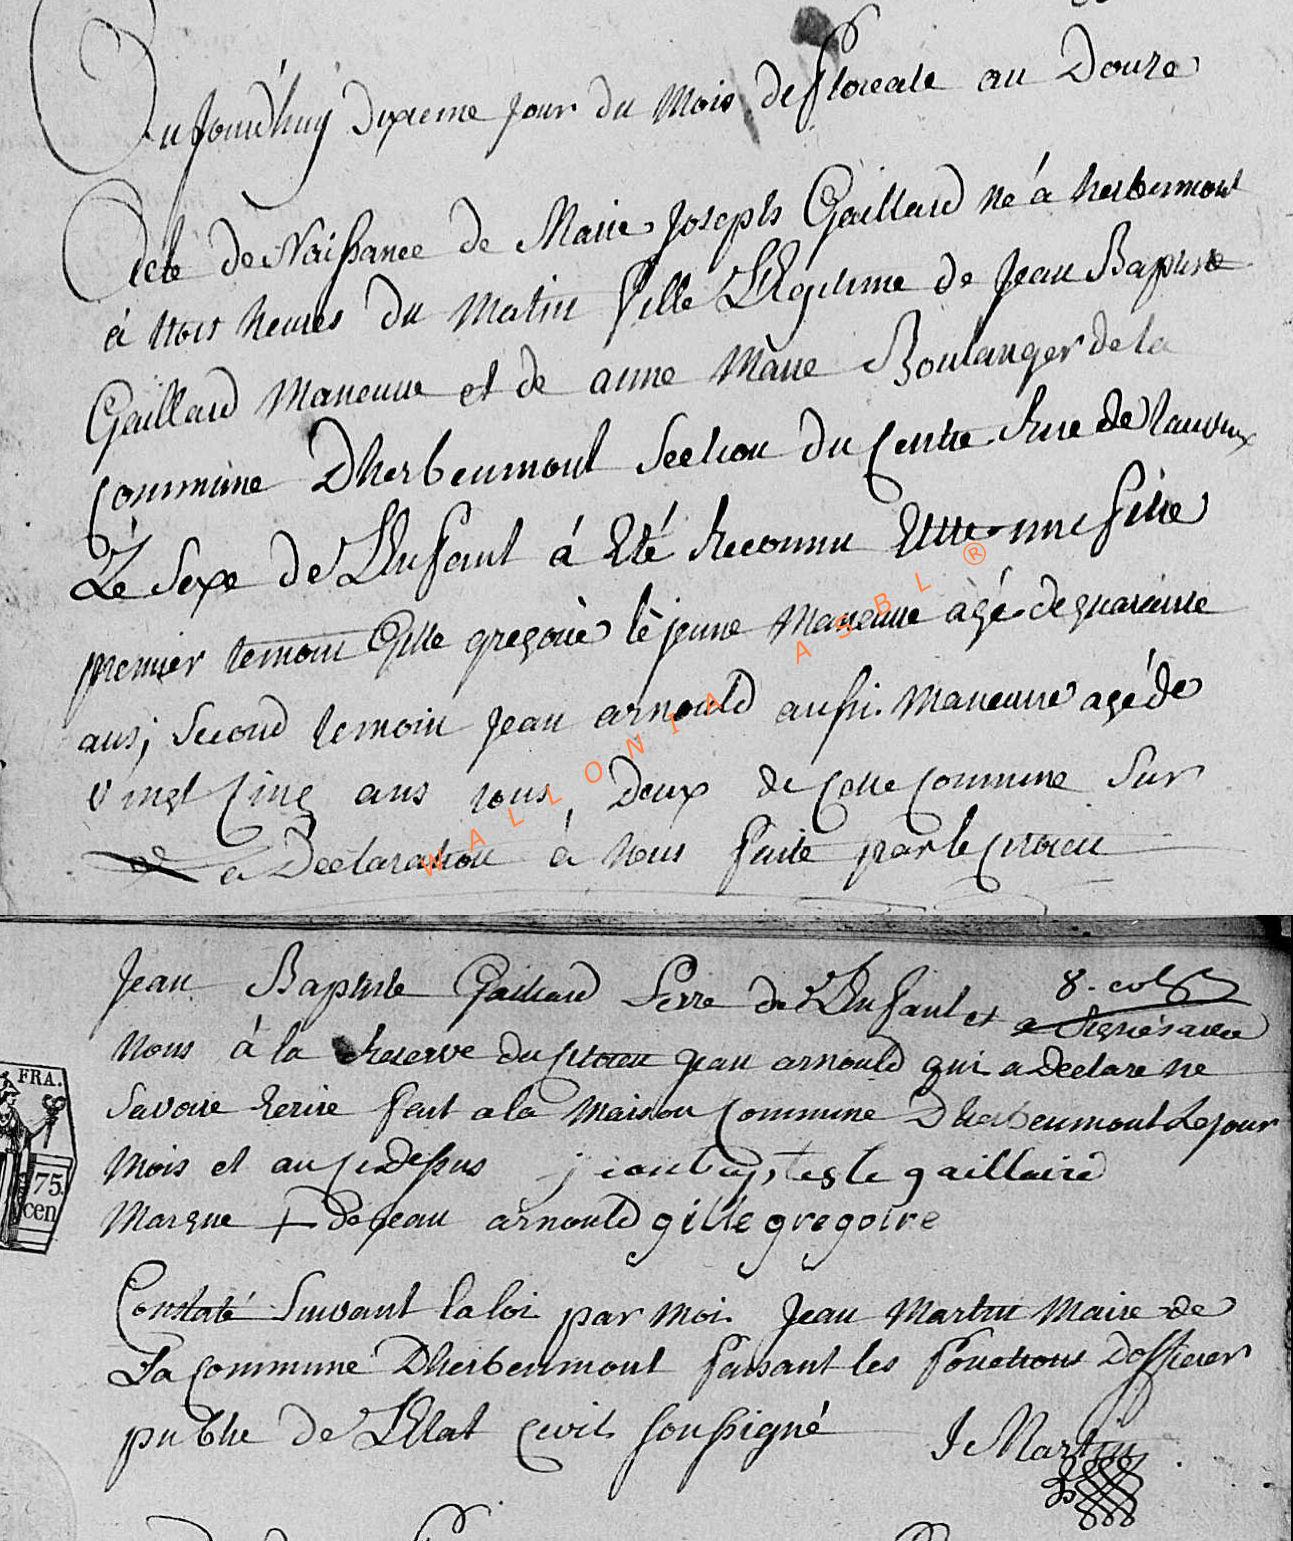 aujourdhuy dixieme jour du mois de floreale an Douze
Acte de Naissance de Marie Joseph Gaillard né á herbeumont
á trois heures du Matin fille Légitime de Jean Baptiste
Gaillard Maneuvre et de anne Marie Boulanger de la
Commune Dherbeumont Section du Centre Rue de
Lé Sexe de L'Enfant á Eté Reconnu Ettre une fille
premier temoin Gille gregoire lé jeune Maneuvre agé de quarante
ans, Second temoin Jean arnould aussi Maneuvre agé de
vingt Cinq ans tous Deux de Cette Commune Sur
la Declaration á Nous faite par le Citoien
WALLONIA ASBL ®
Jean Baptiste Gaillard Perre de L'Enfant et a Signé avec
8.
Nous á la Reserve du Citoien Jean arnould qui a Declaré ne
Savoire Ecrire fait a la Maison Commune Dherbeumont Le jour
Mois et an Ci Dessus jean bapteste gaillaird
Marque + de Jean arnould gille gregoire
FRA.
75
cen
Constaté Suivant la loi par Moi Jean Martin Maire de
La Commune Dherbeumont faisant les fonctions Dofficier
publie de L'Etat Civil soussigné
J Martin